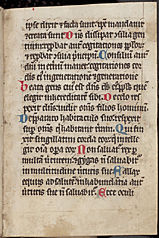 ipse dixit et facta sunt ipse mandauit
et creata sunt Dn̄s dissipat ɔsilia gen
tiū reprobat aut̄ cogitationes ploꝝ
et reprobat ɔsilia principū Consiliū aut̄
dn̄i in et̄nū manet cogitationes cor
dis ei in generatione et generatione
Beata gens cui est dn̄s ds̄ ei ppls quē
elegit in hereditatē sibi De celo res
pexit dn̄s uidit om̄s filios hominū
De preparato habitaculo suo respexit
sup om̄s q̄ habitant terrā Qui fin
xit singillatim corda eoꝝ q̄ intelle
git om̄ia opa eoꝝ Non saluat̄ rex p̄
multā uirtutē et gygas nō saluabit̄
in multitudine uirtutis sue Fallax
equus ad salutē in habundātia aut̄
uirtutis sue nō saluabit̄ Ecce oculi